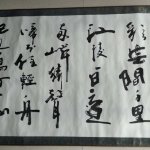 彩雲間千里
江陵一日還
兩岸猿聲
啼不住輕舟
已過萬重山